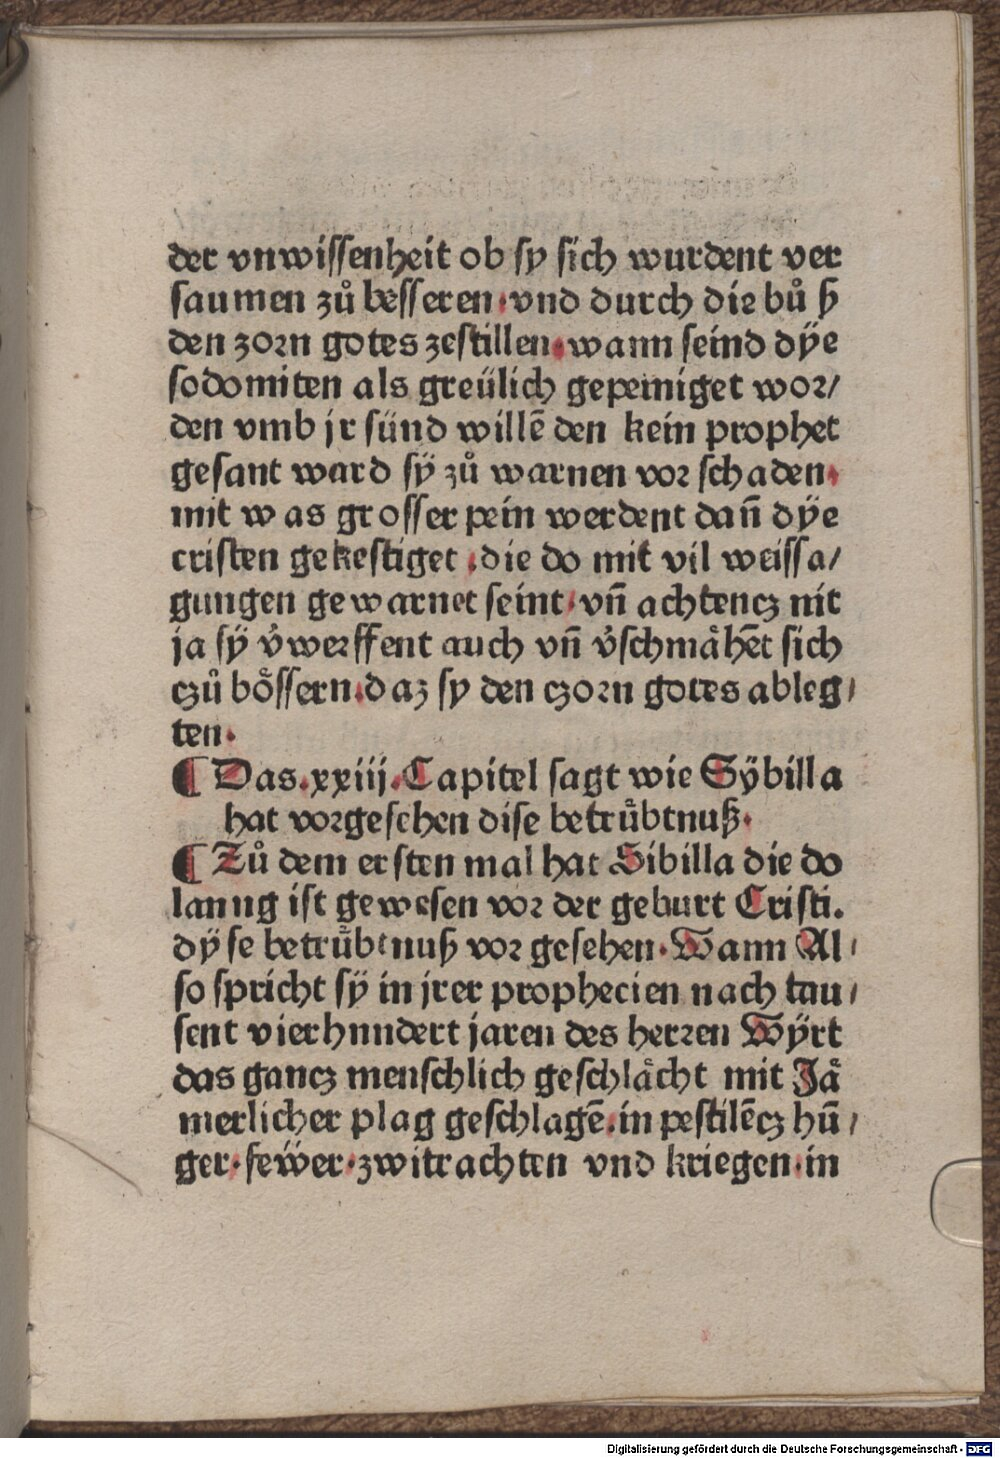 der vnwissenheit ob sy sich wurdent ver
saumen zů besseren·vnd durch die bů ß
den zorn gotes zestillen·wann seind dÿe
sodomiten als greülich gepeiniget wor/
den vmb jr sünd willē den kein prophet
gesant ward sÿ zů warnen vor schaden·
mit w as grosser pein werdent dañ dÿe
cristen gekestiget .die do mit vil weissa/
gungen gewarnet seint·vñ achtencz nit
ja sÿ v̓werffent auch vñ v̓schmåhēt sich
czů bo̊ssern.daz sy den czorn gotes ableg/
ten·
¶ Das.xxiij.Capitel sagt wie Sÿbilla
hat vorgesehen dise betrůbtnuß·
¶ Zů dem ersten mal hat Sibilla die do
lanng ist gewesen vor der geburt Cristi.
dÿ se betrůbtnuß vor gesehen·Wann Al/
so spricht sÿ in jrer prophecien nach tau/
sent vierhnndert jaren des herren Wÿrt
das gancz menschlich geschlåcht mit Jå
merlicher plag geschlagē.in pestilēcz hū/
ger·feẅer·zwitrachten vnd kriegen·in
Digitalisierung gefördert durch die Deutsche Forschungsgemeinschaft - DFG